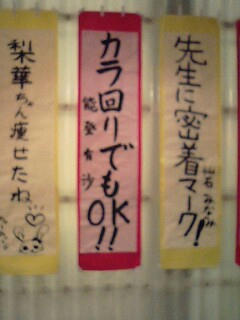 先生に密着マーク!
山石 みなみ
カラ回りでもOK!!
能登有沙
梨華ちゃん痩せたね